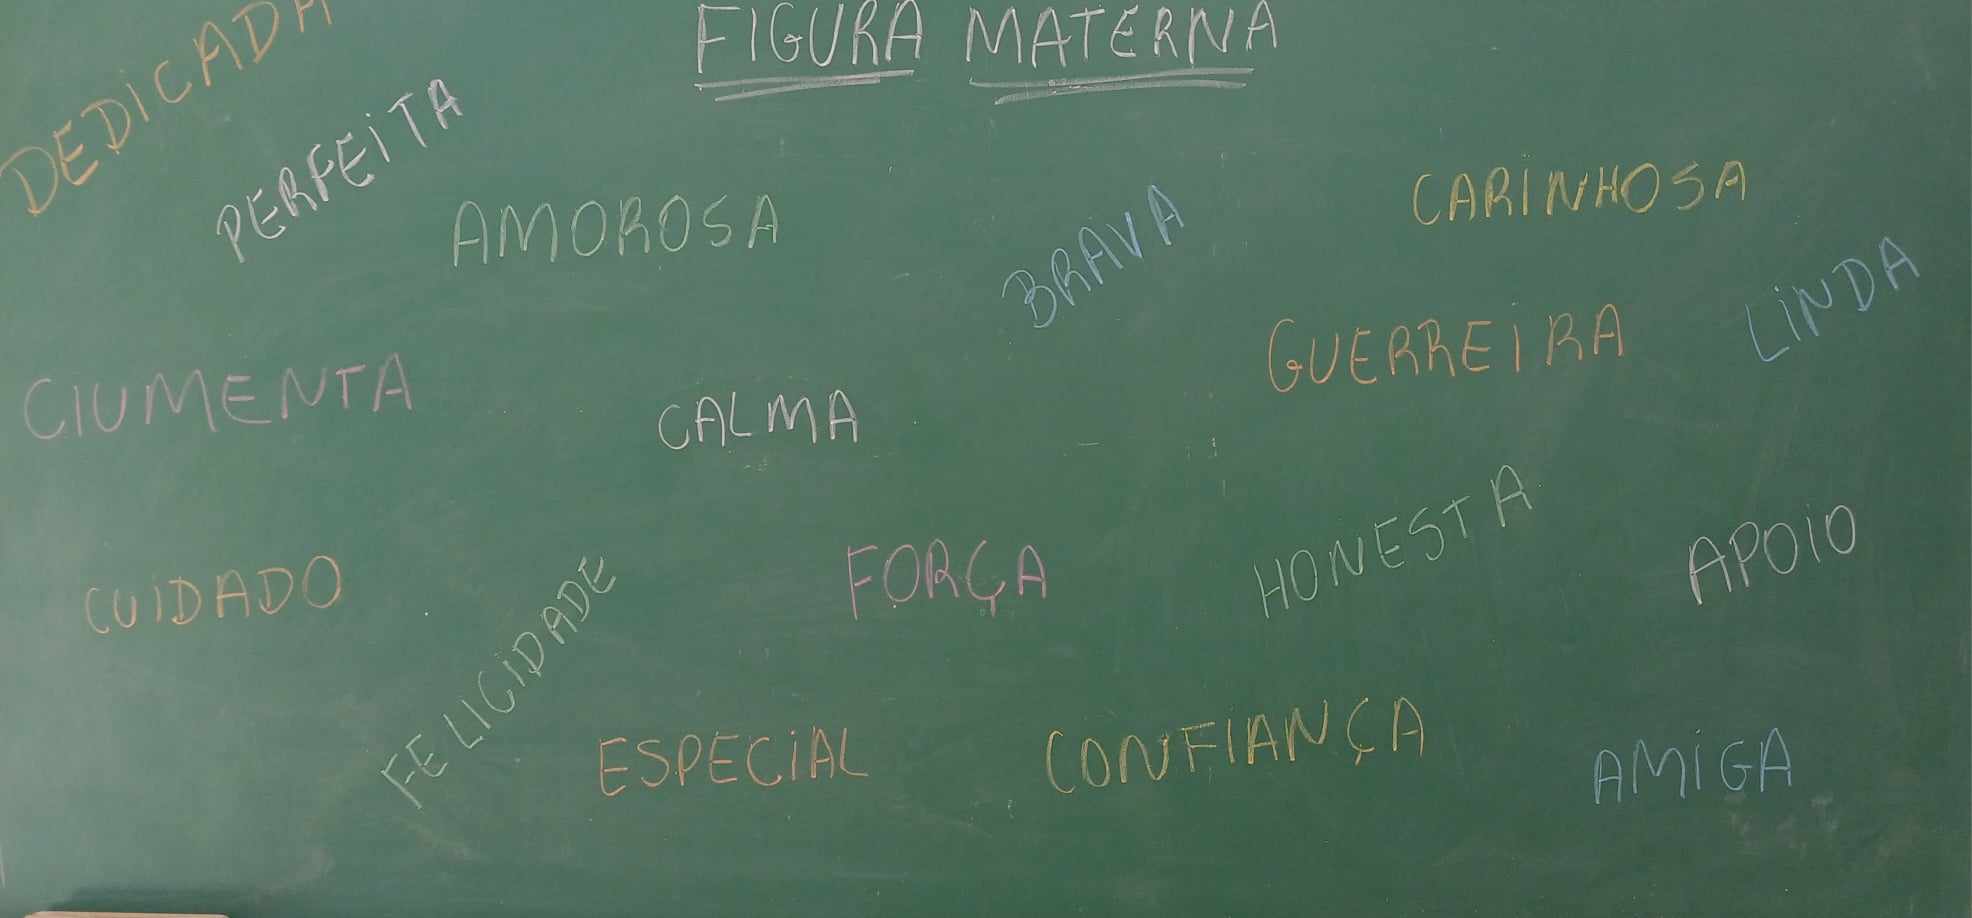 FIGURA MATERNA
DEDICADA
PERFEITA
AMOROSA
BRAVA
CARINHOSA
LINDA
CIUMENTA
CALMA
GUERREIRA
CUIDADO
FELICIDADE
FORÇA
HONESTA
APOIO
ESPECIAL
CONFIANÇA
AMIGA